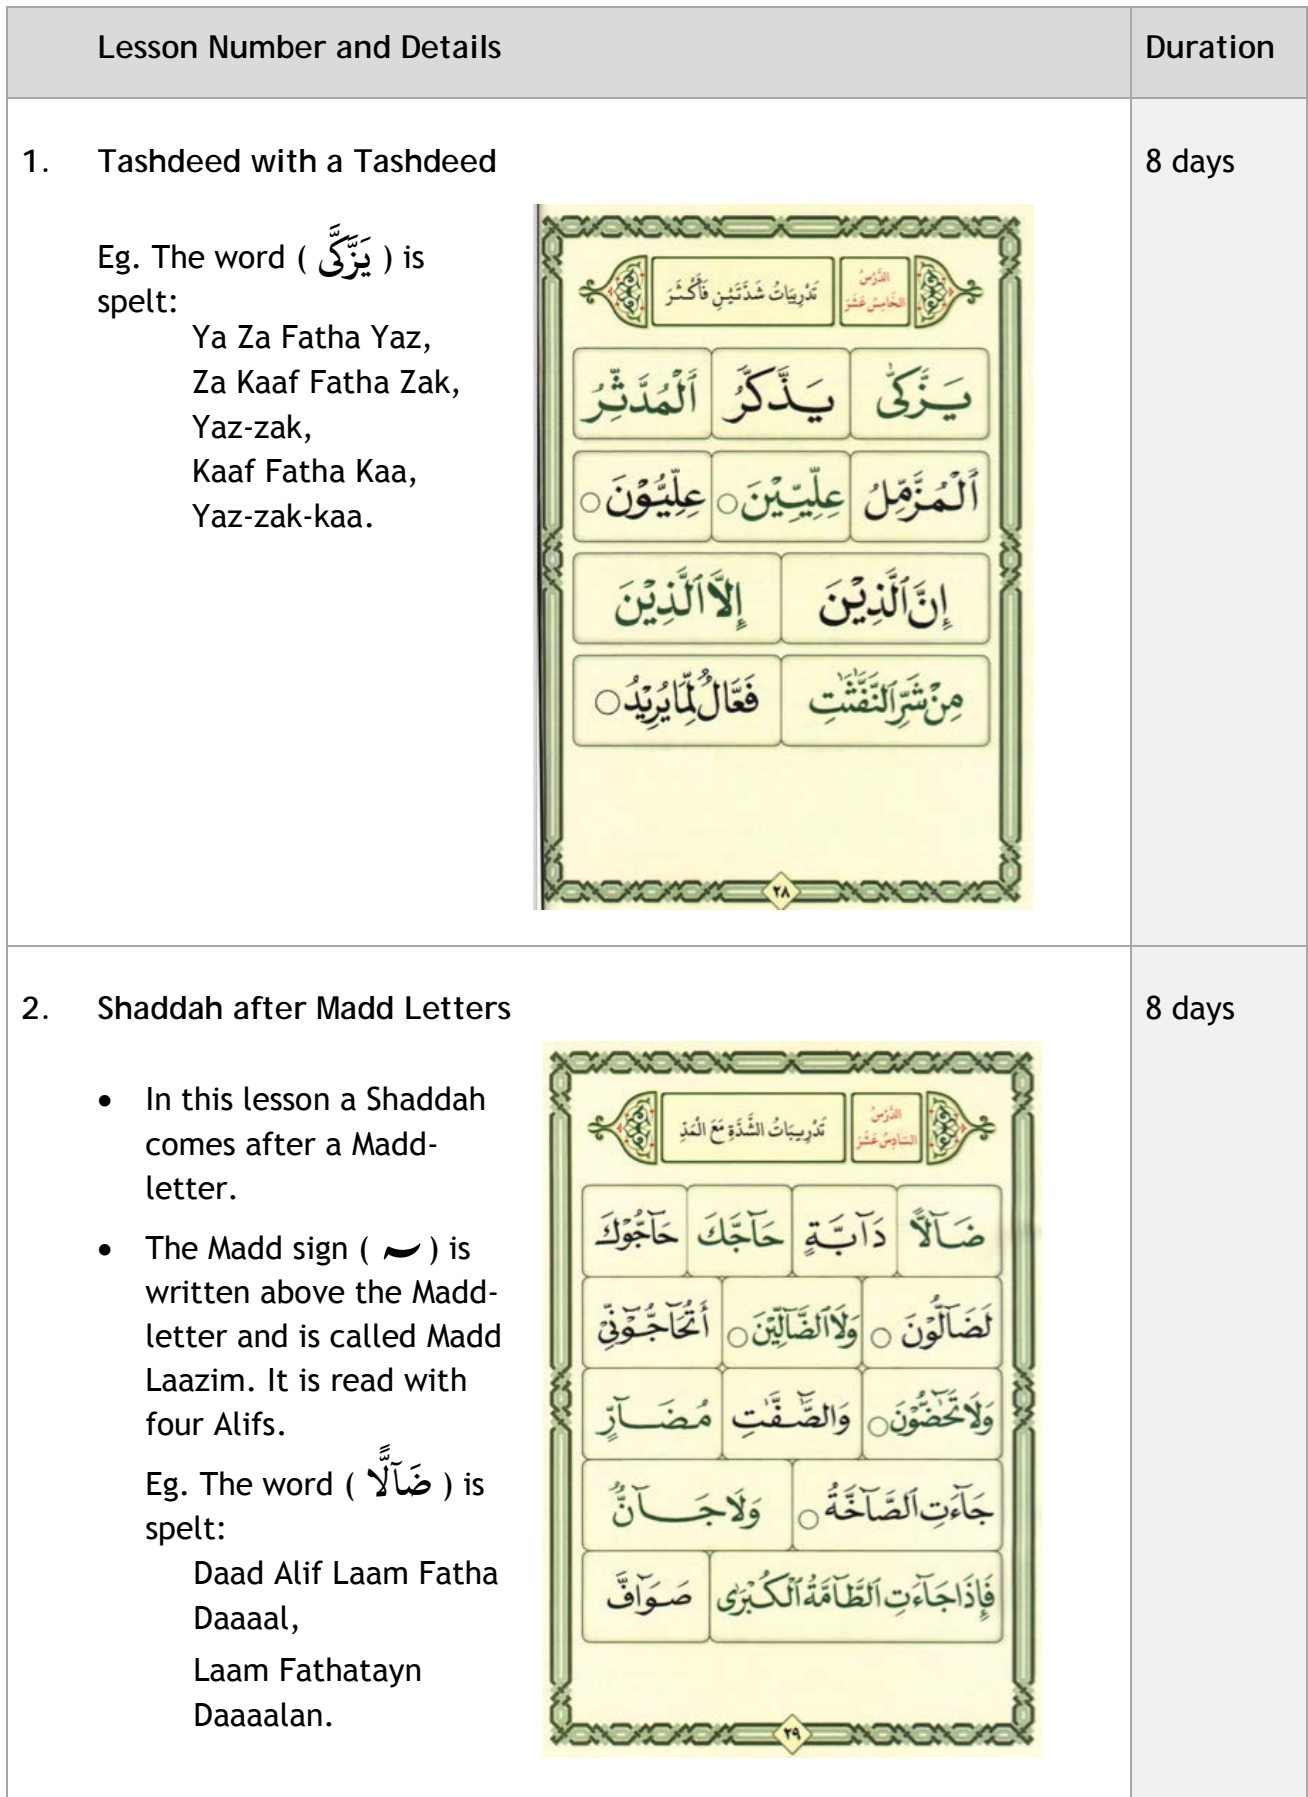 Lesson Number and Details
Duration
1. Tashdeed with a Tashdeed
8 days
Eg. The word ( يَزَّكَّى ) is
spelt:
Ya Za Fatha Yaz,
Za Kaaf Fatha Zak,
Yaz-zak,
Kaaf Fatha Kaa,
Yaz-zak-kaa.
الدَّرْسُ
الخَامِسُ عَشَرَ
تَدْرِيبَاتُ شَدَّتَيْنِ فَأَكْثَرَ
يَزَّكّٰى يَذَّكَّرُ ٱلْمُدَّثِّرُ
ٱلْمُزَّمِّلُ عِلِّيِّيْنَ ○ عِلِّيُّوْنَ ○
إِنَّ ٱلَّذِيْنَ إِلَّا ٱلَّذِيْنَ
مِنْ شَرِّ ٱلنَّفّٰثٰتِ فَعَّالٌ لِّمَا يُرِيْدُ ○
٢٨
2. Shaddah after Madd Letters
8 days
• In this lesson a Shaddah
comes after a Madd-
letter.
• The Madd sign ( ـٓ ) is
written above the Madd-
letter and is called Madd
Laazim. It is read with
four Alifs.
Eg. The word ( ضَآلًّا ) is
spelt:
Daad Alif Laam Fatha
Daaaal,
Laam Fathatayn
Daaaalan.
الدَّرْسُ
السَّادِسُ عَشَرَ
تَدْرِيبَاتُ الشَّدَّةِ مَعَ الْمَدِّ
ضَآلًّا دَآبَّةٍ حَآجَّكَ حَآجُّوْكَ
لَضَآلُّوْنَ ○ وَلَا ٱلضَّآلِّيْنَ ○ أَتُحَآجُّوْٓنِّيْ
وَلَا تَحٰٓضُّوْنَ ○ وَالصّٰٓفّٰتِ مُضَآرٍّ
جَآءَتِ ٱلصَّآخَّةُ ○ وَلَا جَآنٌّ
فَإِذَا جَآءَتِ ٱلطَّآمَّةُ ٱلْكُبْرٰى صَوَآفَّ
٢٩